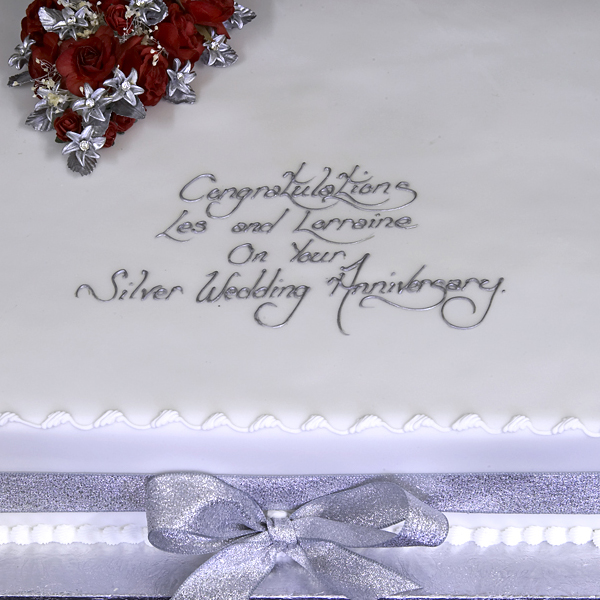 Congratulations
Les and Lorraine
On Your
Silver Wedding Anniversary.